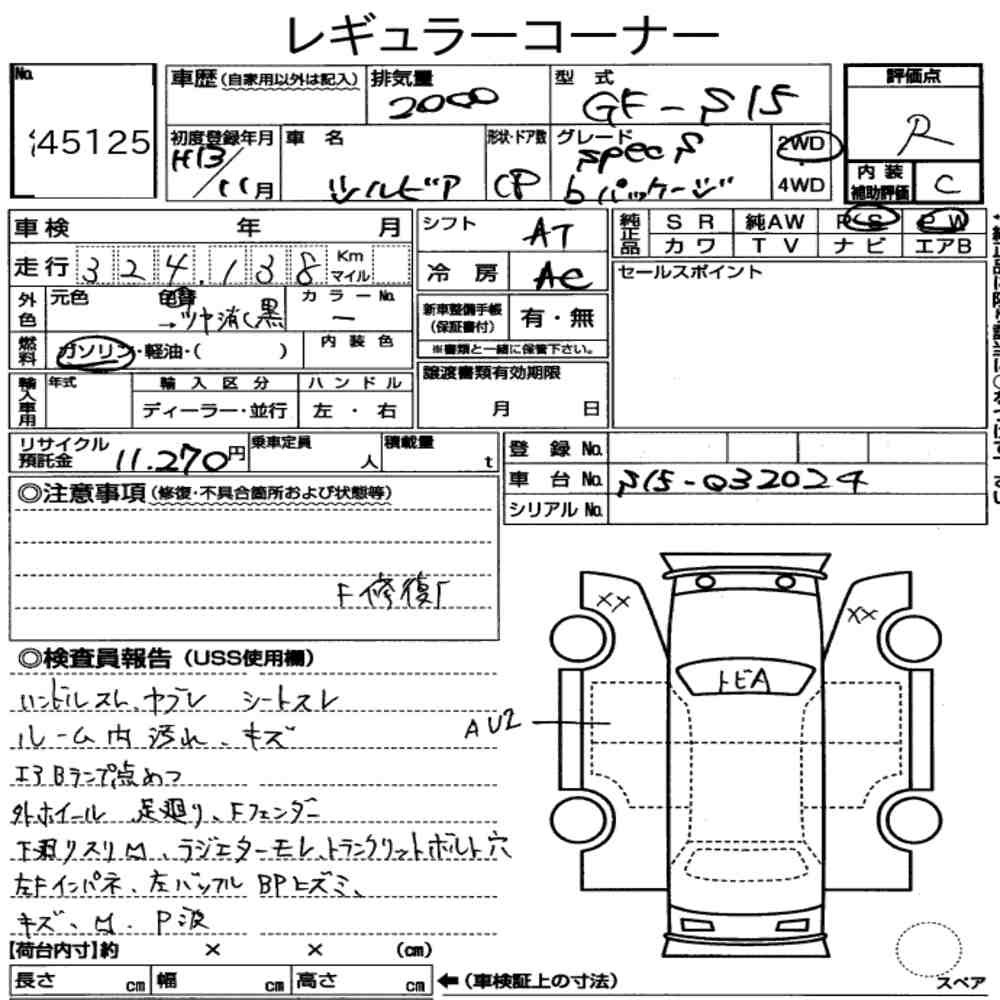 レギュラーコーナー
No. 45125
車歴(自家用以外は記入) 排気量 2000 型式 GF-S15
評価点 R
初度登録年月 H13/11月 車名 シルビア 形状・ドア数 CP グレード specS bパッケージ 2WD 4WD
内装補助評価 C
車検 年 月
シフト AT
純正品 SR 純AW PS PW
カワ TV ナビ エアB
走行 324,138 Km マイル
冷房 AC
セールスポイント
外色 元色 色替 →ツヤ消し黒 カラーNo. ー
新車整備手帳(保証書付) 有・無
※書類と一緒に保管下さい。
燃料 ガソリン・軽油・( ) 内装色
輸入車用 年式 輸入区分 ハンドル
ディーラー・並行 左・右
譲渡書類有効期限
月 日
リサイクル預託金 11.270円 乗車定員 人 積載量 t
登録No.
車台No. S15-032024
シリアルNo.
◎注意事項(修復・不具合箇所および状態等)
F修復
◎検査員報告(USS使用欄)
ハンドルスレ、ヤブレ シートスレ
ルーム内汚れ、キズ
エアBランプ点めつ
外ホイール 足廻り、Fフェンダー
下廻りスリ凹、ラジエターモレ、トランクリットボルト穴
左Fインパネ、左バッフル BPヒズミ、
キズ、凹、P波
XX
XX
トビA
AU2
【荷台内寸】約 × × (cm)
長さ cm 幅 cm 高さ cm ←(車検証上の寸法)
スペア